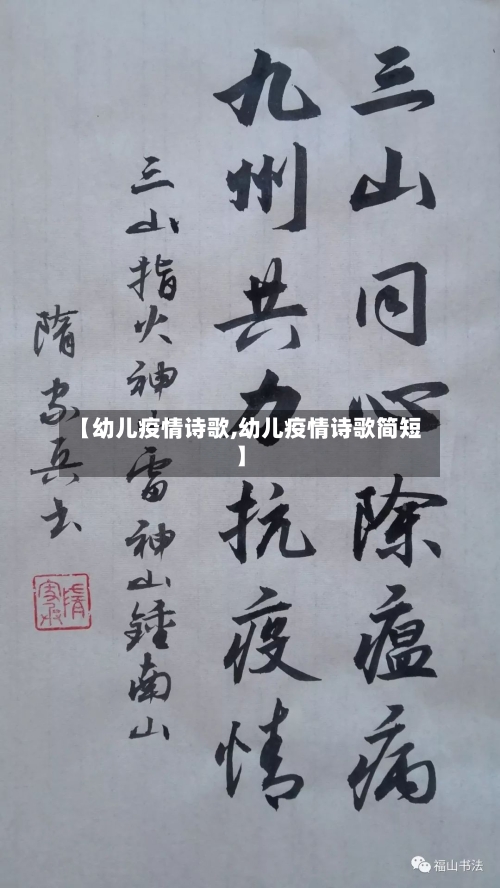 三山同心除瘟病
九州共力抗疫情
三山指火神山雷神山鍾南山
隋家兵书
【幼儿疫情诗歌,幼儿疫情诗歌简短
】
福山书法